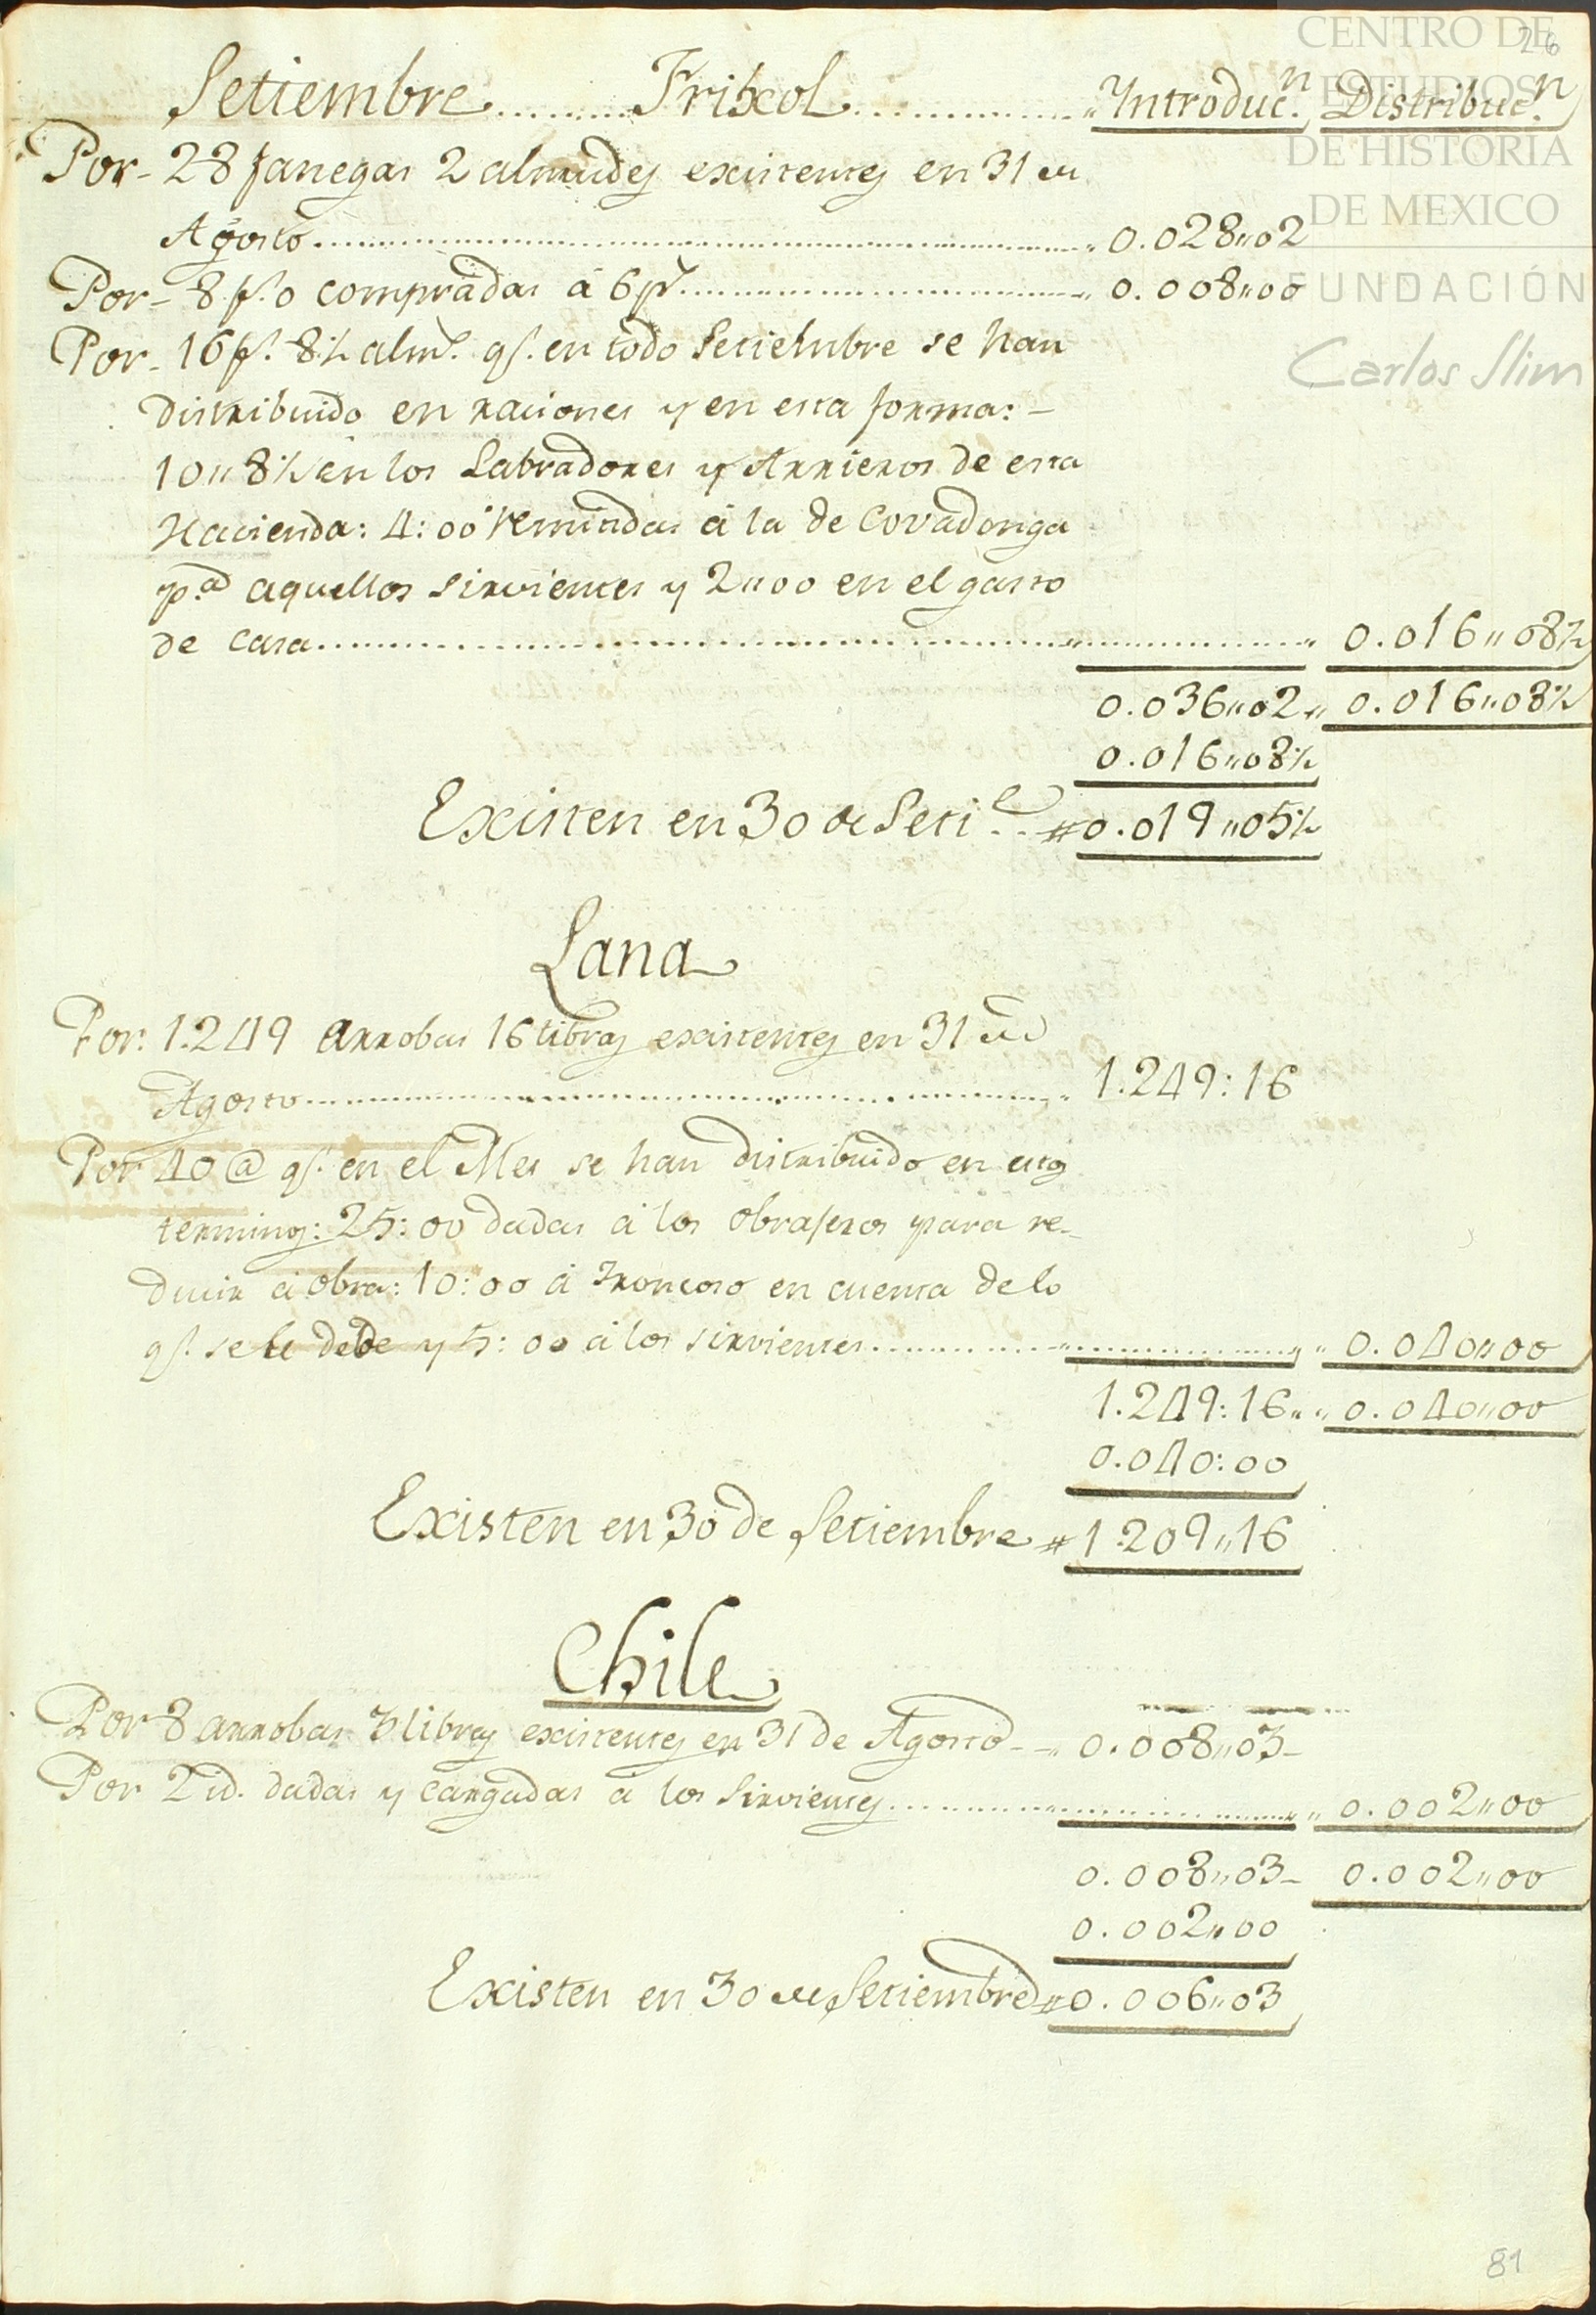 26
Setiembre........Frixol............. Introduc.n Distribuc.n
Por- 28 fanegas 2 almudes existentes en 31 de
Agosto.................... 0.028,,02
Por- 8 f.s 0 compradas á 6 p.s.................... 0.008,,00
Por- 16 f.s 8½ alm.s q.e en todo Setiembre se han
distribuido en raciones y en esta forma: -
10,,8½ en los Labradores y Arrieros de esta
Hacienda: 4:00 remitidas á la de Covadonga
p.a aquellos sirvientes y 2,,00 en el gasto
de casa.................... 0.016,,08½
0.036,,02,, 0.016,,08½
0.016,,08½
Existen en 30 de Seti.e.. #0.019,,05½
Lana
Por. 1.249 arrobas 16 libras existentes en 31 de
Agosto.................... 1.249:16
Por 40 @ q.e en el Mes se han distribuido en estos
terminos: 25:00 dadas á los obrajeros para re-
ducir á obra: 10:00 á Troncoso en cuenta de lo
q.e se le debe y 5:00 á los sirvientes.................... 0.040,,00
1.249:16,, 0.040,,00
0.040:00
Existen en 30 de Setiembre #1.209,,16
Chile
Por 8 arrobas 3 libras existentes en 31 de Agosto-- 0.008,,03-
Por 2 id. dadas y cargadas á los Sirvientes.................... 0.002,,00
0.008,,03- 0.002,,00
0.002,,00
Existen en 30 de Setiembre #0.006,,03
81
CENTRO DE
ESTUDIOS
DE HISTORIA
DE MEXICO
FUNDACIÓN
Carlos Slim